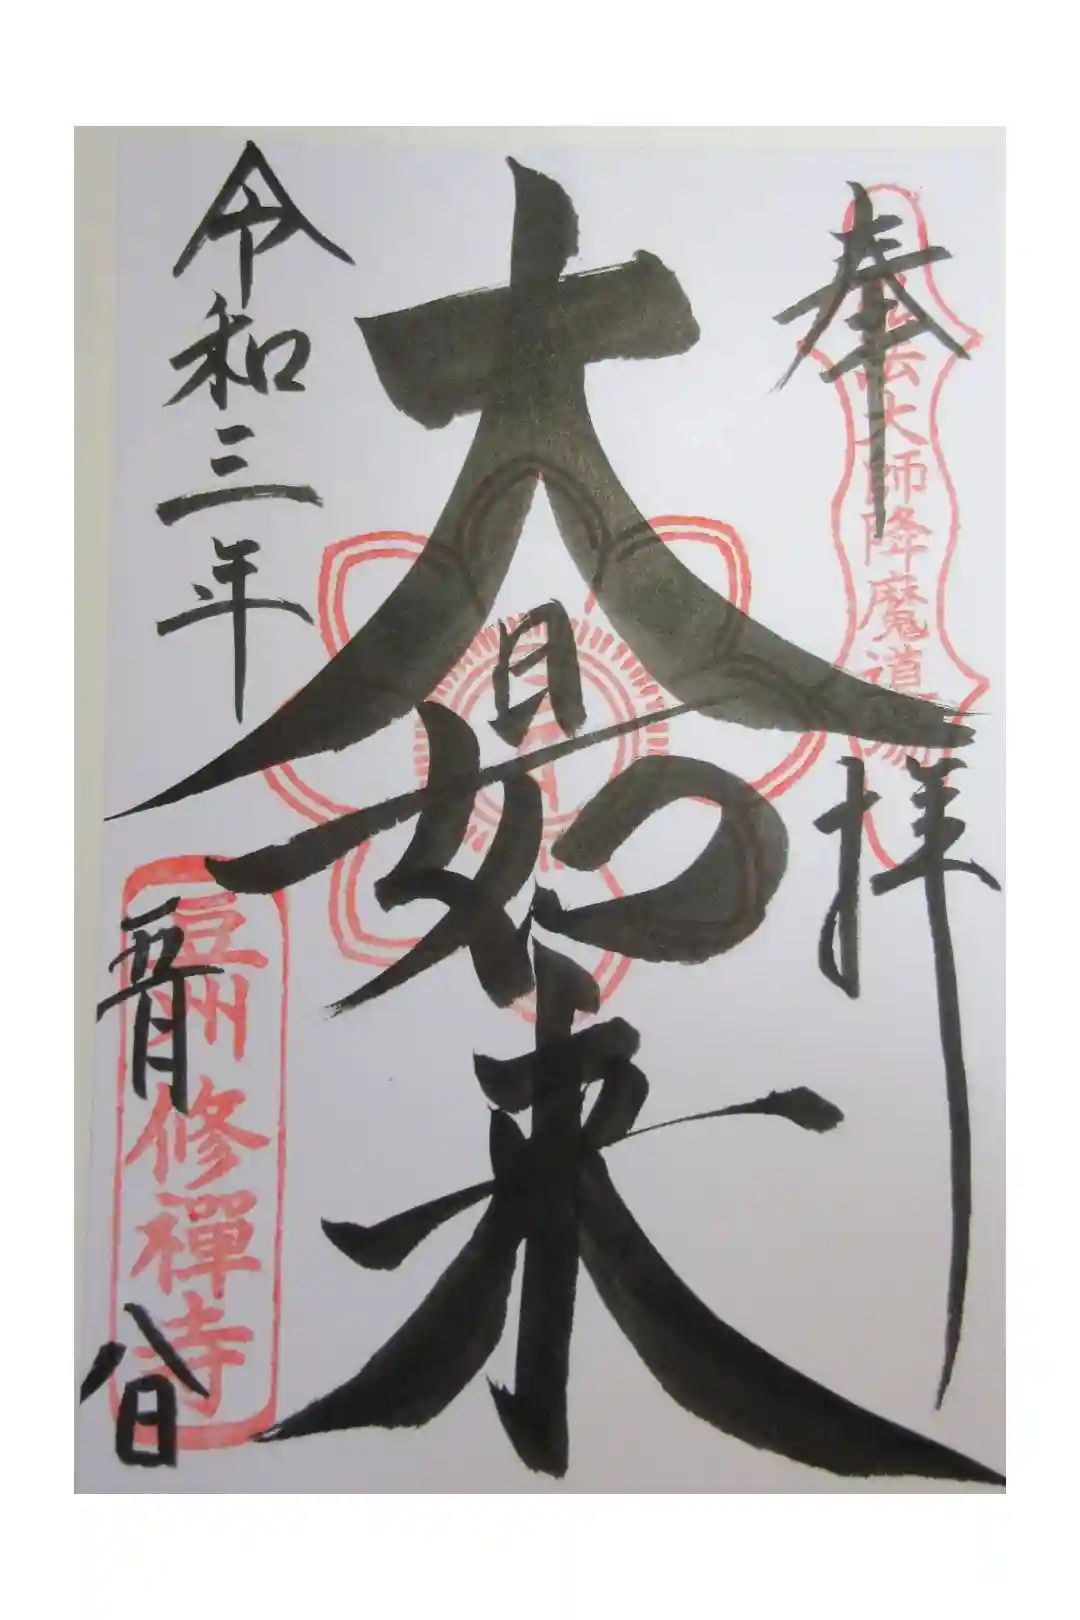 奉拝
弘法大師降魔道場
大日如来
令和三年
五月
八日
豆州修禅寺